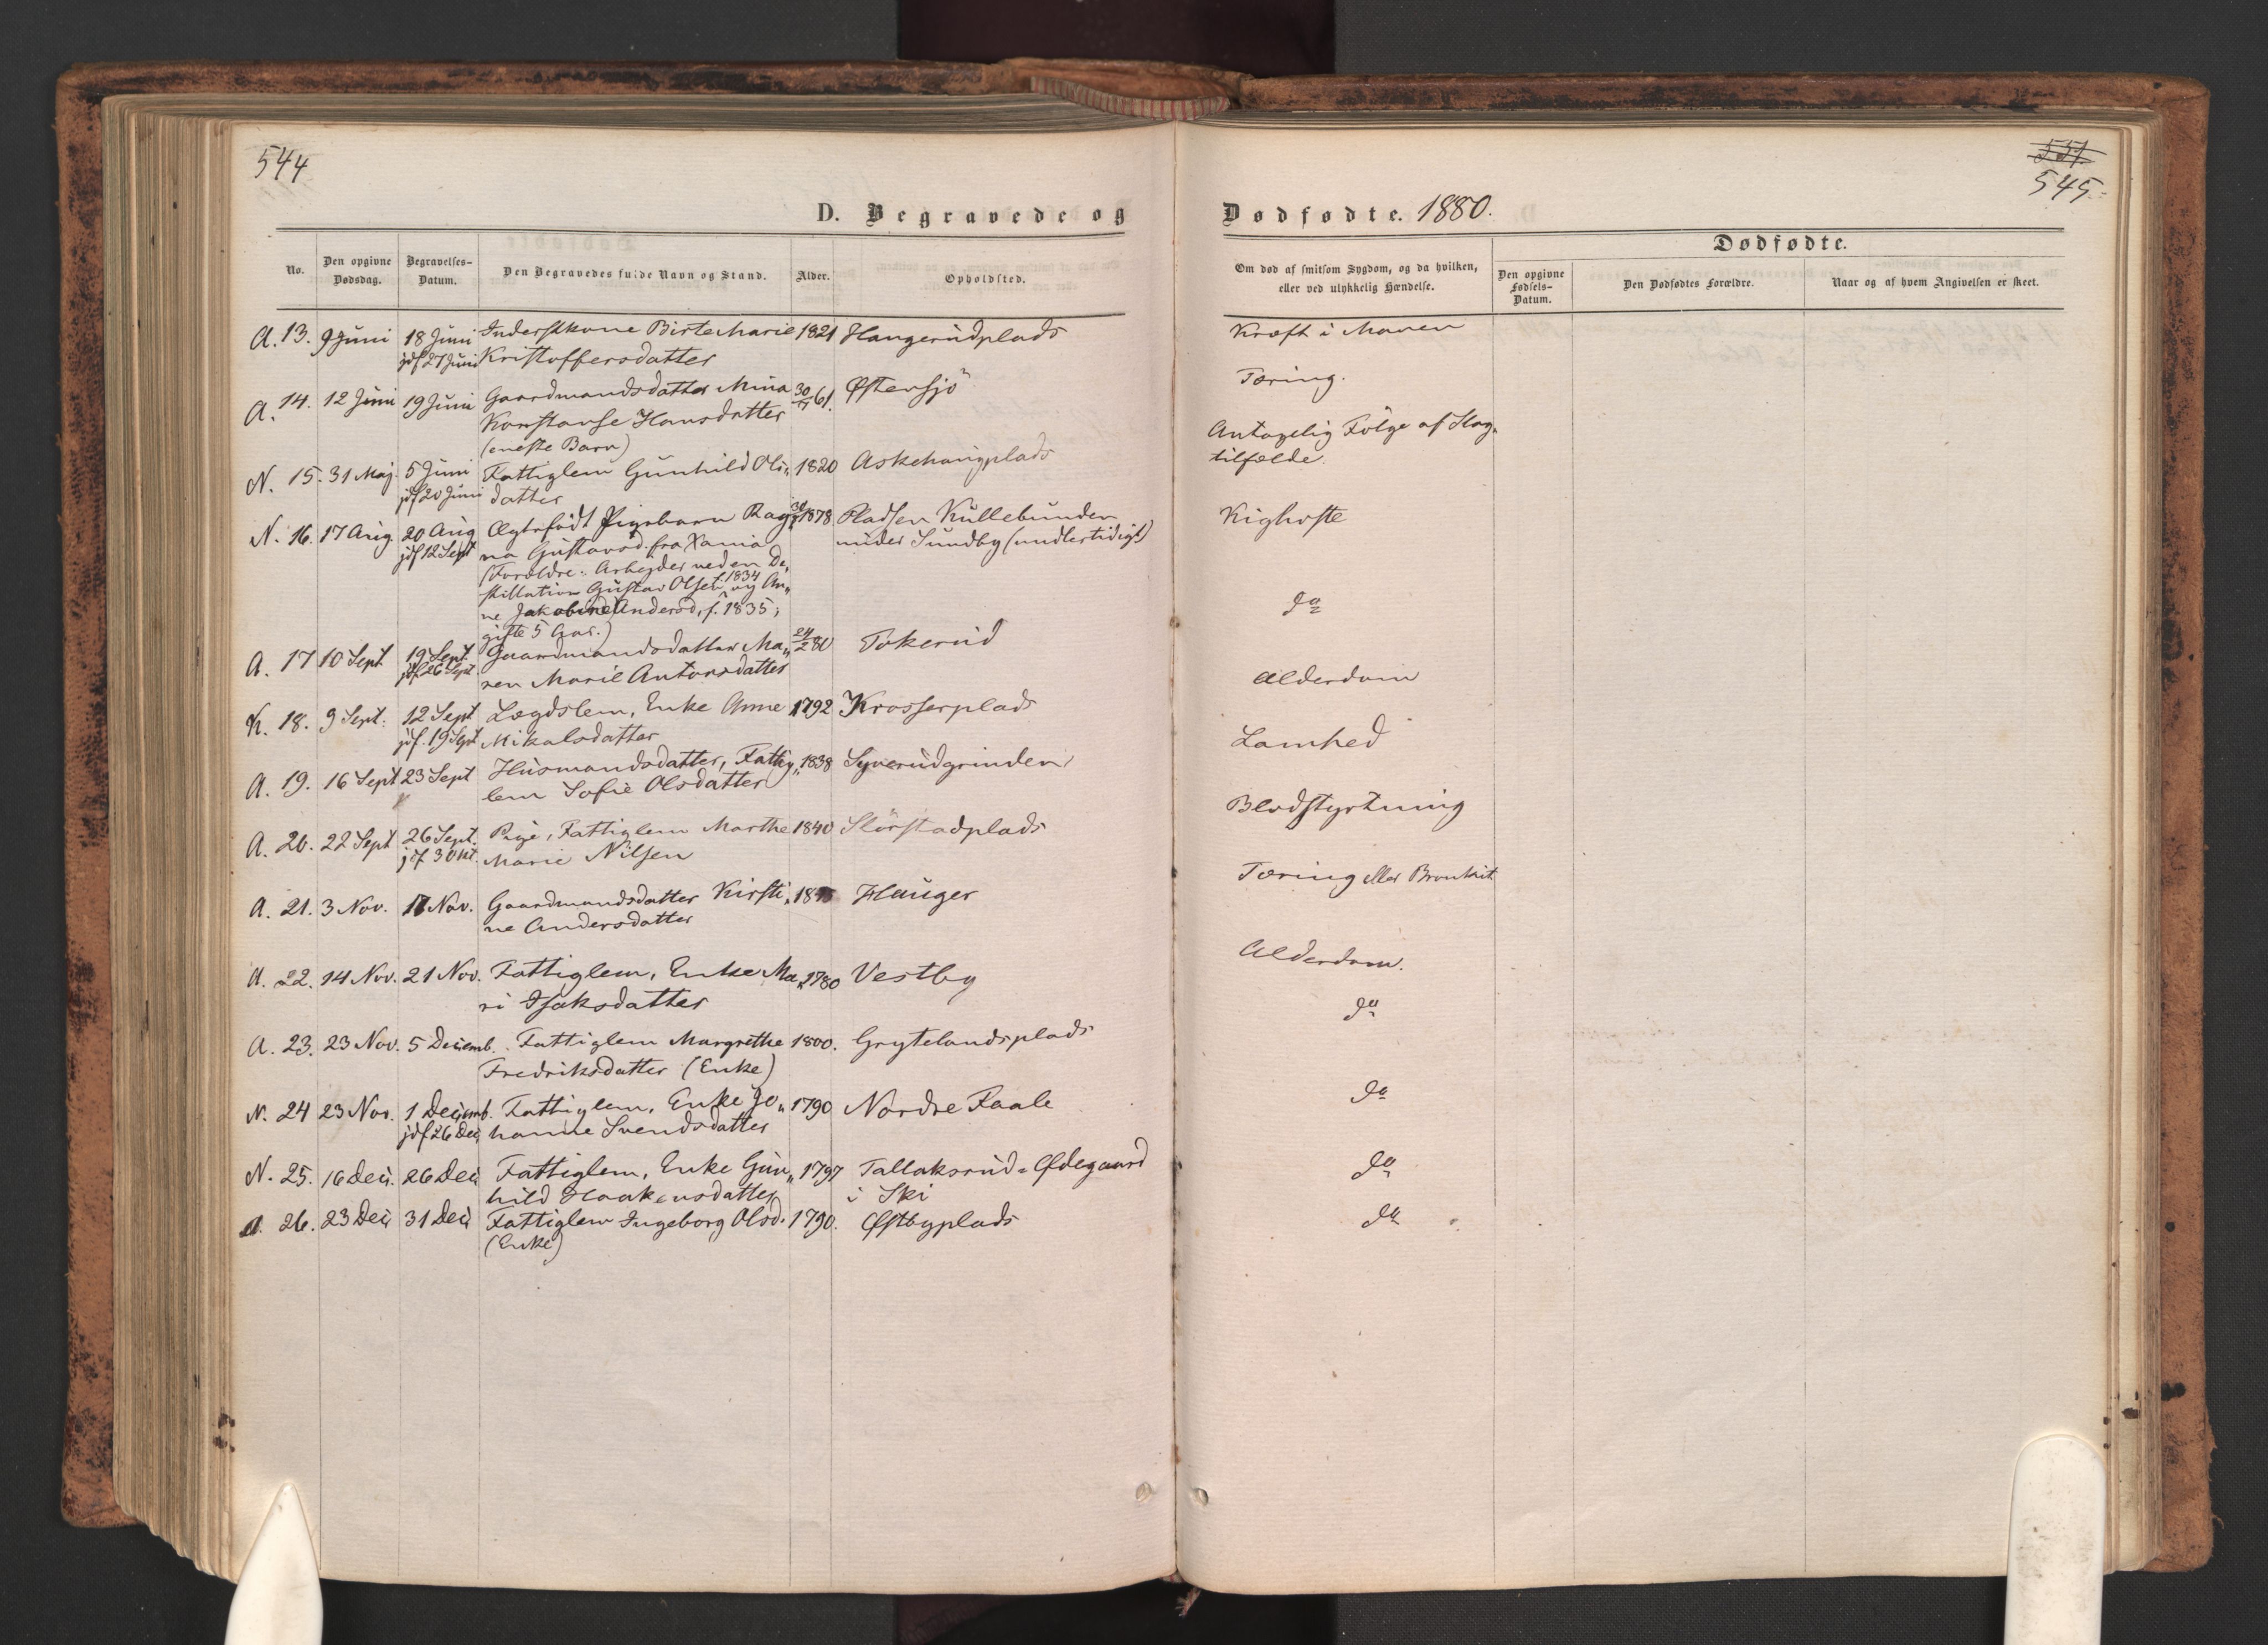 544
D. Begravede og
No.
Den opgivne
Dødsdag.
Begravelses-
Datum.
Den Begravedes fulde Navn og Stand.
Alder.
Opholdsted.
A. 13. 9 Juni 18 Juni Inderstkone Birte Marie 1821 Haugerudplads
jdf 27 Juni Kristoffersdatter
A. 14. 12 Juni 19 Juni Gaardmandsdatter Mina 30/11 61. Østensjö
Konstanse Hansdatter
(eneste Barn)
N. 15. 31 Maj. 5 Juni Fattiglem Gunhild Ols„ 1820 Askehaugplads
jdf 20 Juni datter
N. 16. 17 Aug. 20 Aug Ægtefødt Pigebarn Rag„ 1878. Pladsen Kullebunden
jdf 12 Sept na Gustavsd. fra Xania under Sundby (midlertidigt)
(Forældre: Arbejder ved en De„
stillation Gustav Olsen, f. 1834 og An„
ne Jakobine Andersd, f. 1835;
gifte 5 Aar.)
A. 17 10 Sept 19 Sept. Gaardmandsdatter Ma„ 24/2 80 Tokerud
jdf 26 Sept. ren Marie Antonsdatter
K. 18. 9 Sept. 12 Sept Lægdslem, Enke Anne 1792 Krosserplads
jdf. 19 Sept. Mikalsdatter
A. 19. 16 Sept 23 Sept Husmandsdatter, Fattig„ 1838 Syverudgrinden
lem Sofie Olsdatter
A. 20. 22 Sept 26 Sept. Pige, Fattiglem Marthe 1840 Slörstadplads
jdf 3 Okt. Marie Nilsen
A. 21. 3 Nov. 17 Nov. Gaardmandsdatter Kirsti„ Hauger
ne Andersdatter
A. 22. 14 Nov. 21 Nov. Fattiglem, Enke Ma„ 1780 Vestby
ri Isaksdatter
A. 23. 23 Nov. 5 Decemb. Fattiglem Margrethe 1800. Grytelandsplads
Fredriksdatter (Enke)
N. 24 23 Nov. 1 Decemb. Fattiglem, Enke Jo„ 1790 Nordre Faale
jdf 26 Dec, hanne Svendsdatter
N. 25. 16 Dec. 26 Dec Fattiglem, Enke Gun„ 1797 Tallaksrud-Ødegaard
hild Haakensdatter i Ski
A. 26. 23 Dec, 31 Dec Fattiglem Ingeborg Olsd. 1790. Østbyplads
(Enke)
551.
545.
Dødfødte. 1880.
Om død af smitsom Sygdom, og da hvilken,
eller ved ulykkelig Hændelse.
Dødfødte.
Den opgivne
Fødsels-
Datum.
Den Dødfødtes Forældre.
Naar og af hvem Angivelsen er skeet.
Kræft i Maven
Tæring.
Antagelig Følge af Slag„
tilfælde.
Kighoste
do
Alderdom
Lamhed
Blodstyrtning
Tæring eller Bronkit
Alderdom.
do
do
do
do